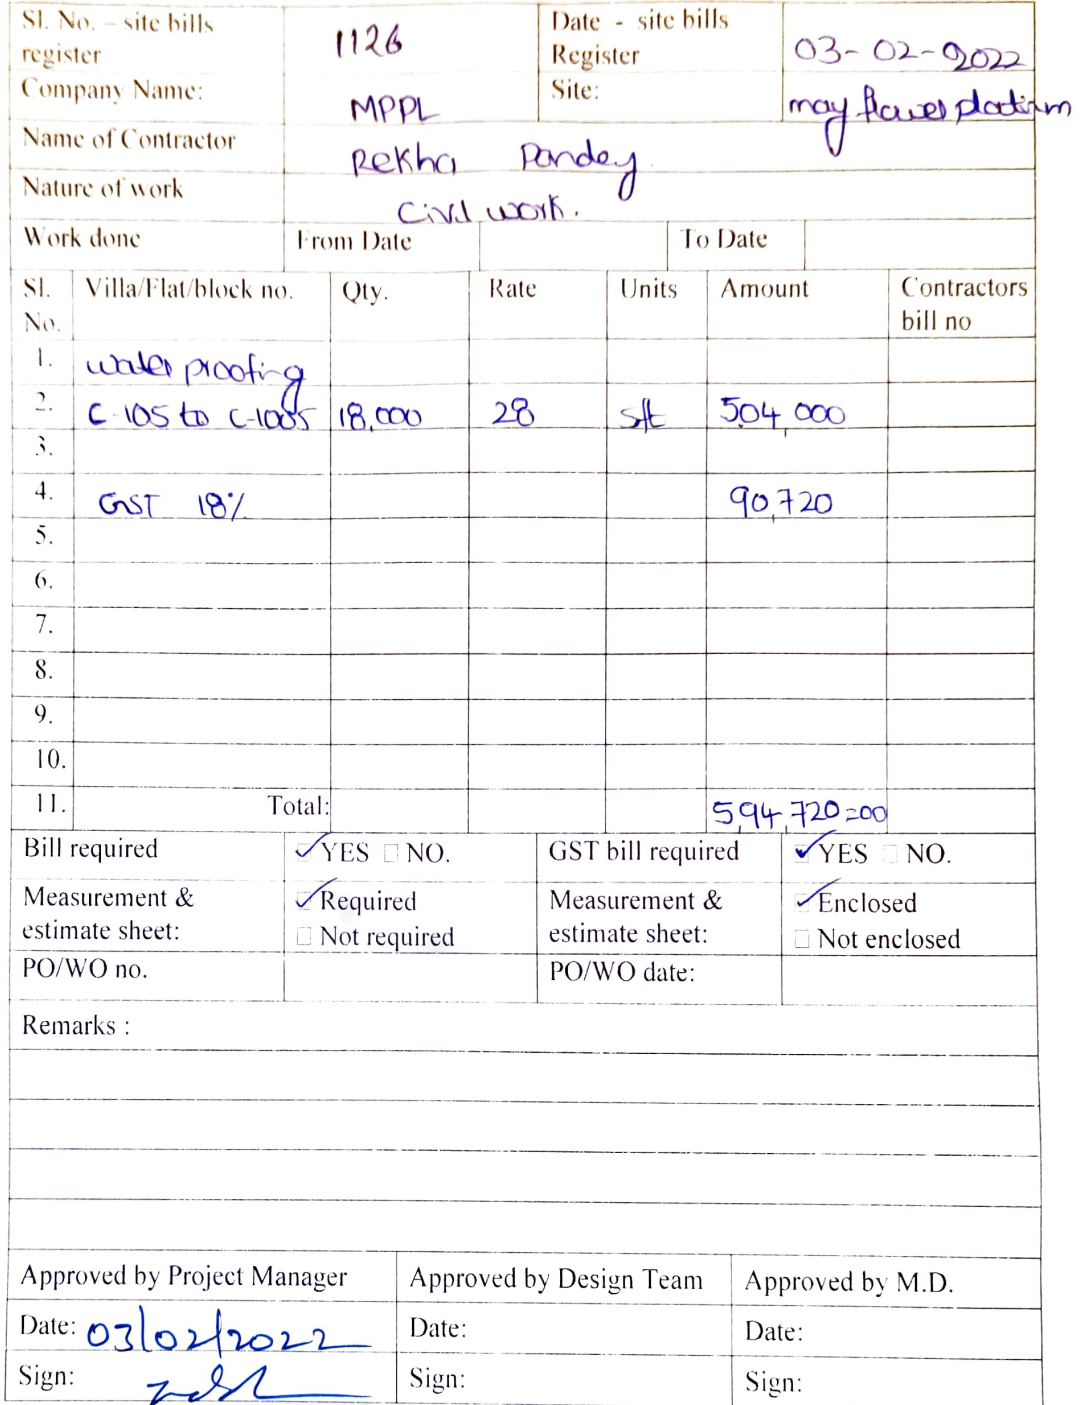 Sl. No. – site bills register 1126 Date - site bills Register 03-02-2022
Company Name: MPPL Site: may flower platinum
Name of Contractor Rekha Pandey
Nature of work Civil work.
Work done From Date To Date
Sl. No. Villa/Flat/block no. Qty. Rate Units Amount Contractors bill no
1. water proofing
2. C-105 to C-1005 18,000 28 sft 504,000
3.
4. GST 18% 90,720
5.
6.
7.
8.
9.
10.
11. Total: 5,94,720=00
Bill required YES NO. GST bill required YES NO.
Measurement & estimate sheet: Required Not required Measurement & estimate sheet: Enclosed Not enclosed
PO/WO no. PO/WO date:
Remarks :
Approved by Project Manager Approved by Design Team Approved by M.D.
Date: 03/02/2022 Date: Date:
Sign: Sign: Sign: